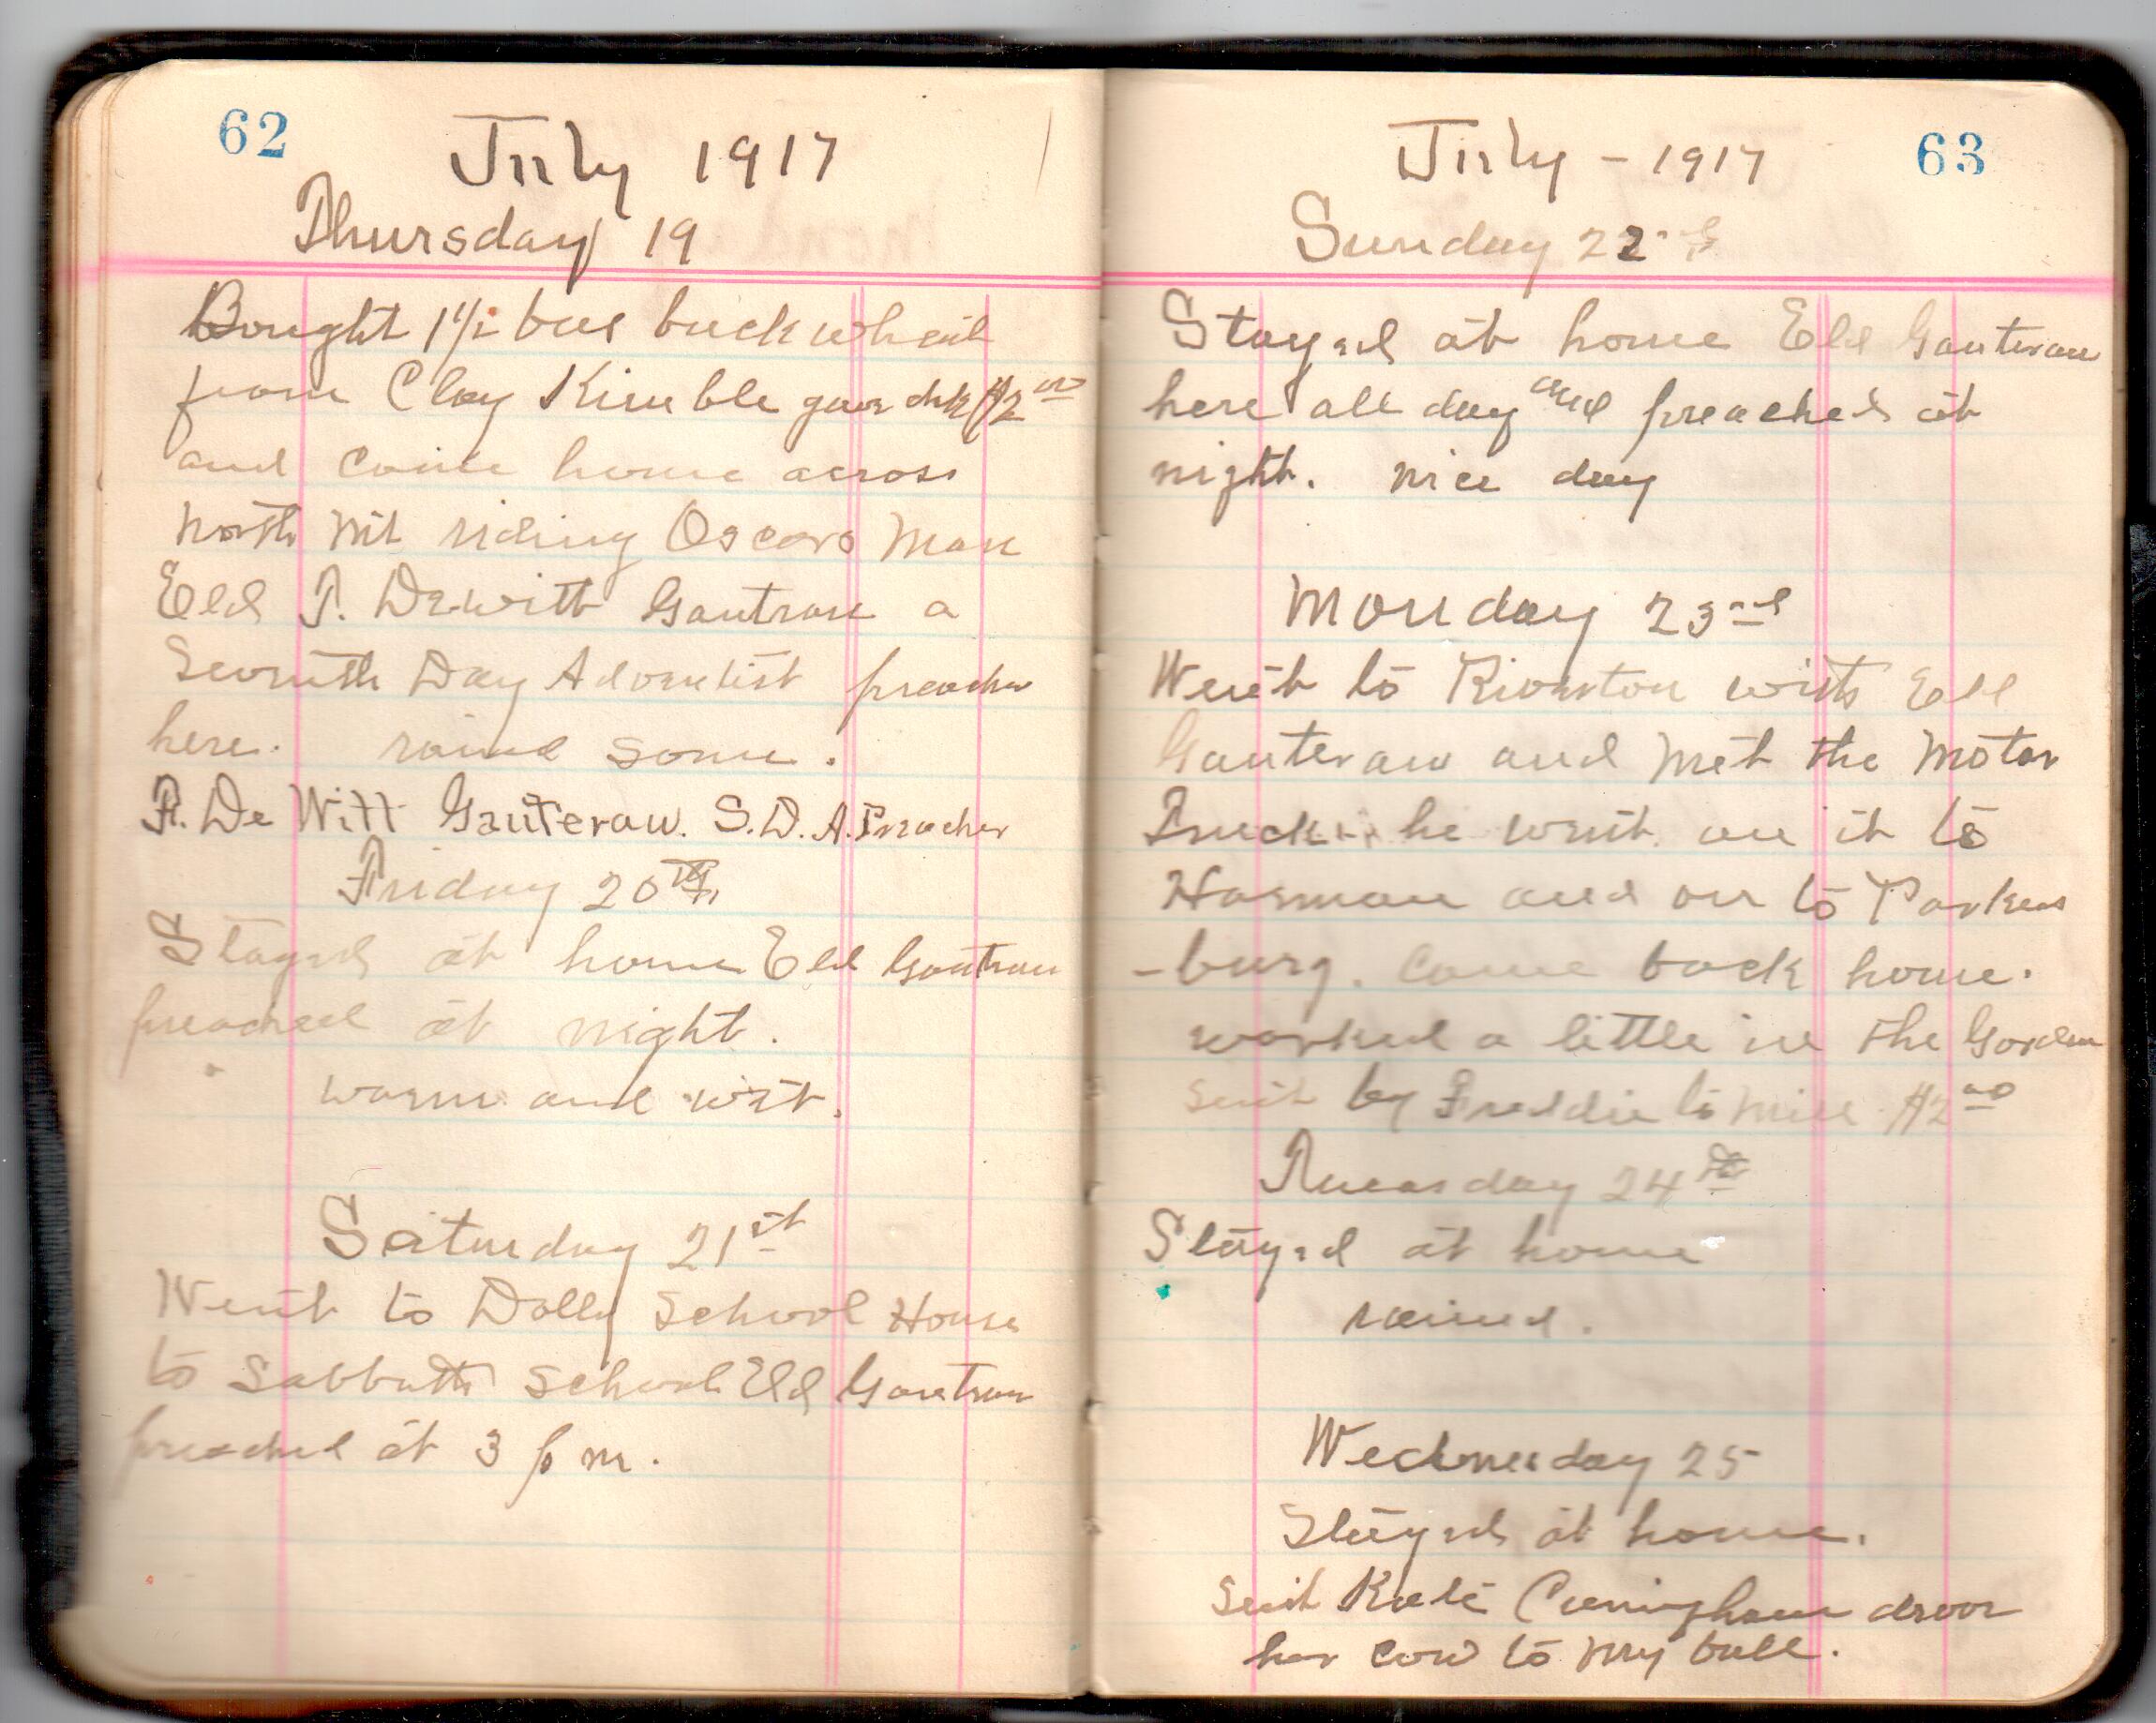 62
July 1917
Thursday 19
Bought 1 1/2 bus buckwheat
from Clay Kimble gave chk $2 00
and come home across
north Mt riding Oscars Mare
Eld P. Dewitt Gauteraw a
Seventh Day Adventist preacher
here. raind some.
P. De Witt Gauteraw. S.D.A. Preacher
Friday 20th
Stayed at home Eld Gauteraw
preached at night.
warm and wet.
Saturday 21st
Went to Dolly School House
to Sabbath School Eld Gauteraw
preached at 3 p m.
July - 1917
63
Sunday 22
Stayed at home Eld Gauteraw
here all day and preached at
night. nice day
Monday 23rd
Went to Riverton with Eld
Gauteraw and met the Motor
Truck he went on it to
Harman and on to Parkers
-burg. Come back home.
worked a little in the Garden
sent by Freddie to mill $2 00
Tuesday 24th
Stayed at home
rained.
Wednesday 25
Stayed at home.
Kate Cuningham drove
her cow to my bull.